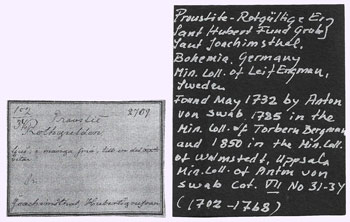 107
2709
34
Proustit
Rothgulden
Joachimsthal, Hubertigrufvan
Proustite-Rotgültige Erz
Sant Hubert Fund Grube
Sant Joachimsthal,
Bohemia, Germany
Min. Coll. of Leif Engman,
Sweden
Found May 1732 by Anton
von Swab, 1785 in the
Min. Coll. of Torbern Bergman
and 1850 in the Min. Coll.
of Walmstedt, Uppsala
Min. Coll. of Anton von
Swab Cat. VII No 31-34
(1702-1768)